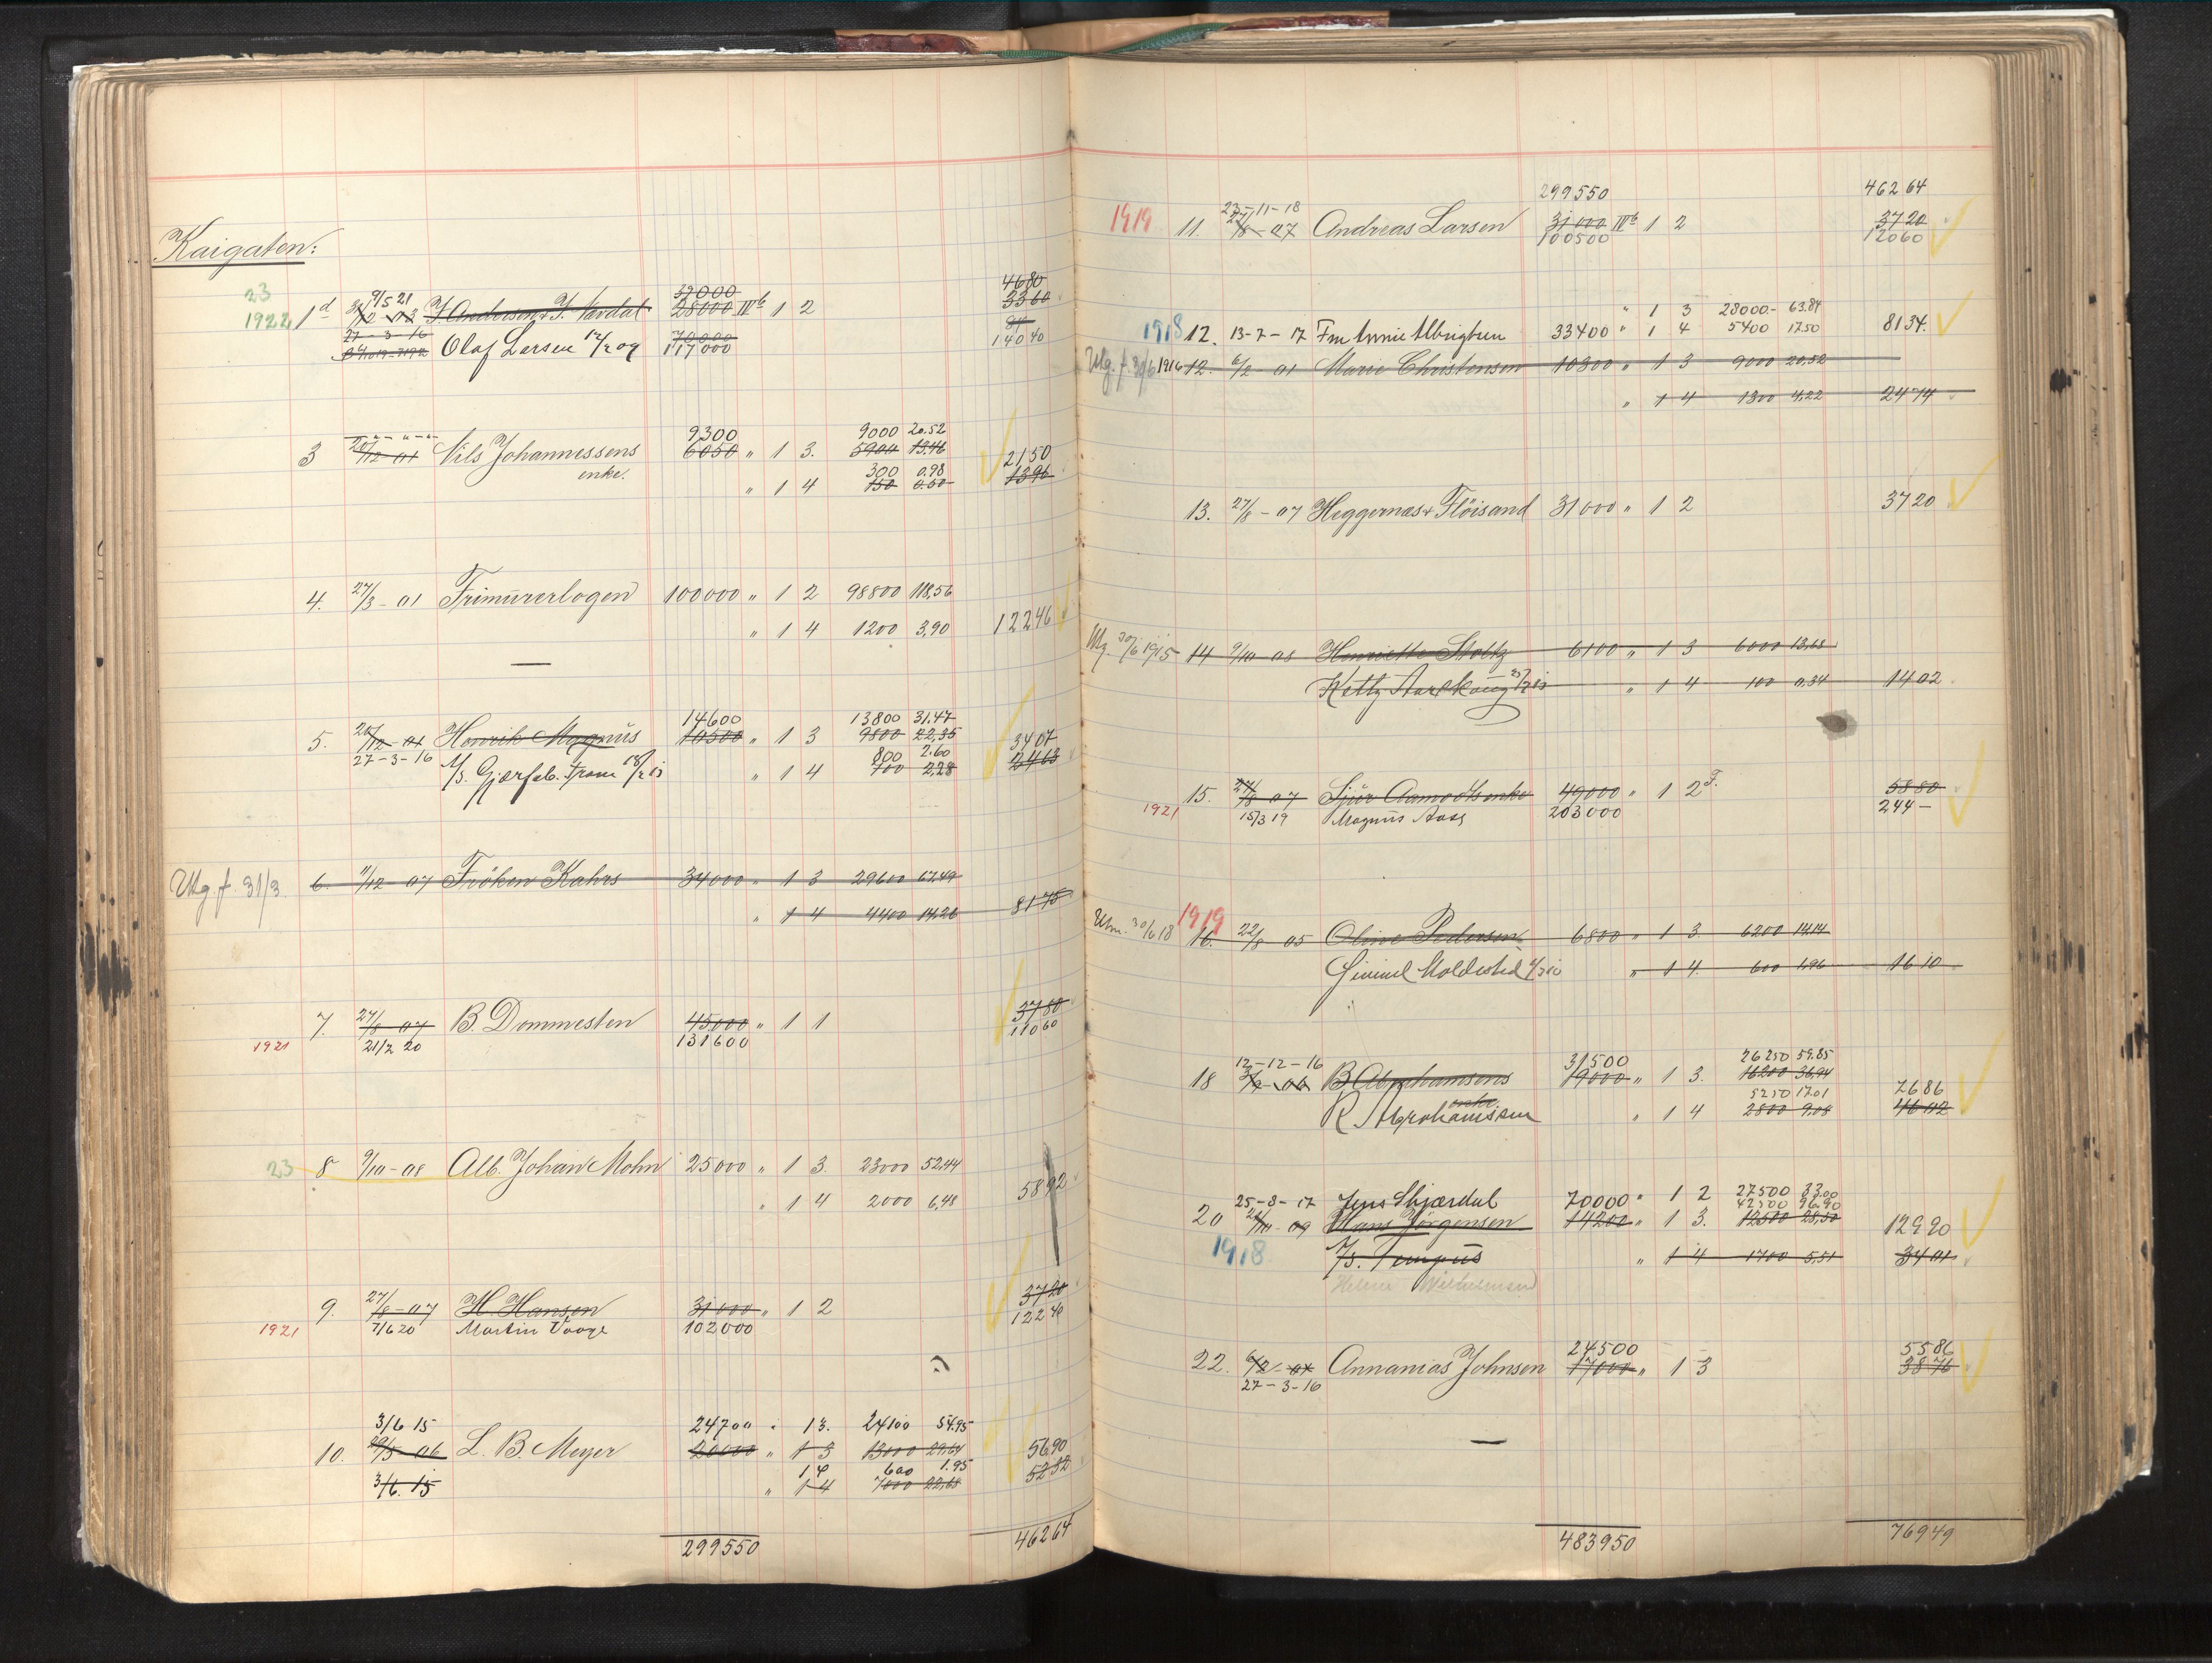 Kaigaten:
23 9/5 21 32000 4680
1922 1d J. Andersen & J. Vardal 28000 IVb 1 2 3360
27-3-16 70000 84
Olaf Larsen 12/2 09 117000 14040
9300 9000 20.52
3 20/12-01 Nils Johannessens 6050 " 1 3. 5900 13.46 2150
enke. 300 0.98
" 1 4 150 0.50 1396
4. 27/3-01 Frimurerlogen 100000 " 1 2 98800 118,56
" 1 4 1200 3,90 12246
14600 13800 31.47
5. 20/12-01 Henrik Magnus 10500 " 1 3 9800 22,35 3407
27-3-16 800 2.60
A/S. Gjærfab. Trone " 1 4 700 2,28 2463
Utg. f. 31/3 6. 11/12-07 Fröken Kahrs 34000 " 1 3 29600 67,49
" 1 4 4400 14,26 8175
7. 27/8-07 B. Dommesten 45000 " 1 1 3780
1921 21/2 20 131600 11060
23 8 9/10-08 Alb. Johan Mohn 25000 " 1 3. 23000 52,44
" 1 4 2000 6,48 5892
9. 27/8-07 H. Hansen 31000 " 1 2 3720
1921 7/6 20 Martin Vaage 102000 12240
3/6 15 24700 " 1 3. 24100 54.95
10. 29/5-06 L. B. Meyer 20000 " 1 3 13000 29,64 5690
1 4 600 1.95
3/6. 15 " 1 4 7000 22,68 5232
299550 46264
299550 46264
23-11-18
1919 11. 27/8-07 Andreas Larsen 31000 IVb 1 2 3720
100500 12060
" 1 3 28000.- 63.84
1918 12. 13-7-17 33400 " 1 4 5400 17.50 8134.
Utg. f. 30/6 1916 12. 6/2-01 Marie Christensen 10300 " 1 3 9000 20,52
" 1 4 1300 4,22 2474
13. 27/8-07 Heggernæs & Flöisand 31000 " 1 2 3720
Utg. 30/6 1915 14 9/10-08 Henriette Stoltz 6100 " 1 3 6000 13,68
" 1 4 100 0.34 1402
15. 27/8-07 Sjur Aamodts enke 49000 " 1 2 F. 5880
1921 15/3 19 Magnus Aase 203000 244-
1919
Utm. 30/6 18 16. 22/8 05 Oline Pedersen 6800 " 1 3. 6200 14,14
" 1 4. 600 1,96 1610
12-12-16 31500 26250 59.85
18 B. Abrahamsens 19000 " 1 3. 16200 36,94
enke. 5250 17.01 7686
R. Abrahamsen " 1 4 2800 9,08 4602
25-8-17 Jens Skjærdal 70000 " 1 2 27500 33.00
42500 96.90
20 Hans Jörgensen 14200 " 1 3. 12500 28,50 12990
1918 A/S. Tempus " 1 4 1700 5,51 3401
Helene Wilhelmsen
24500 5586
22. 6/2-01 Annanias Johnsen 17000 " 1 3 3876
27-3-16
483950 76949